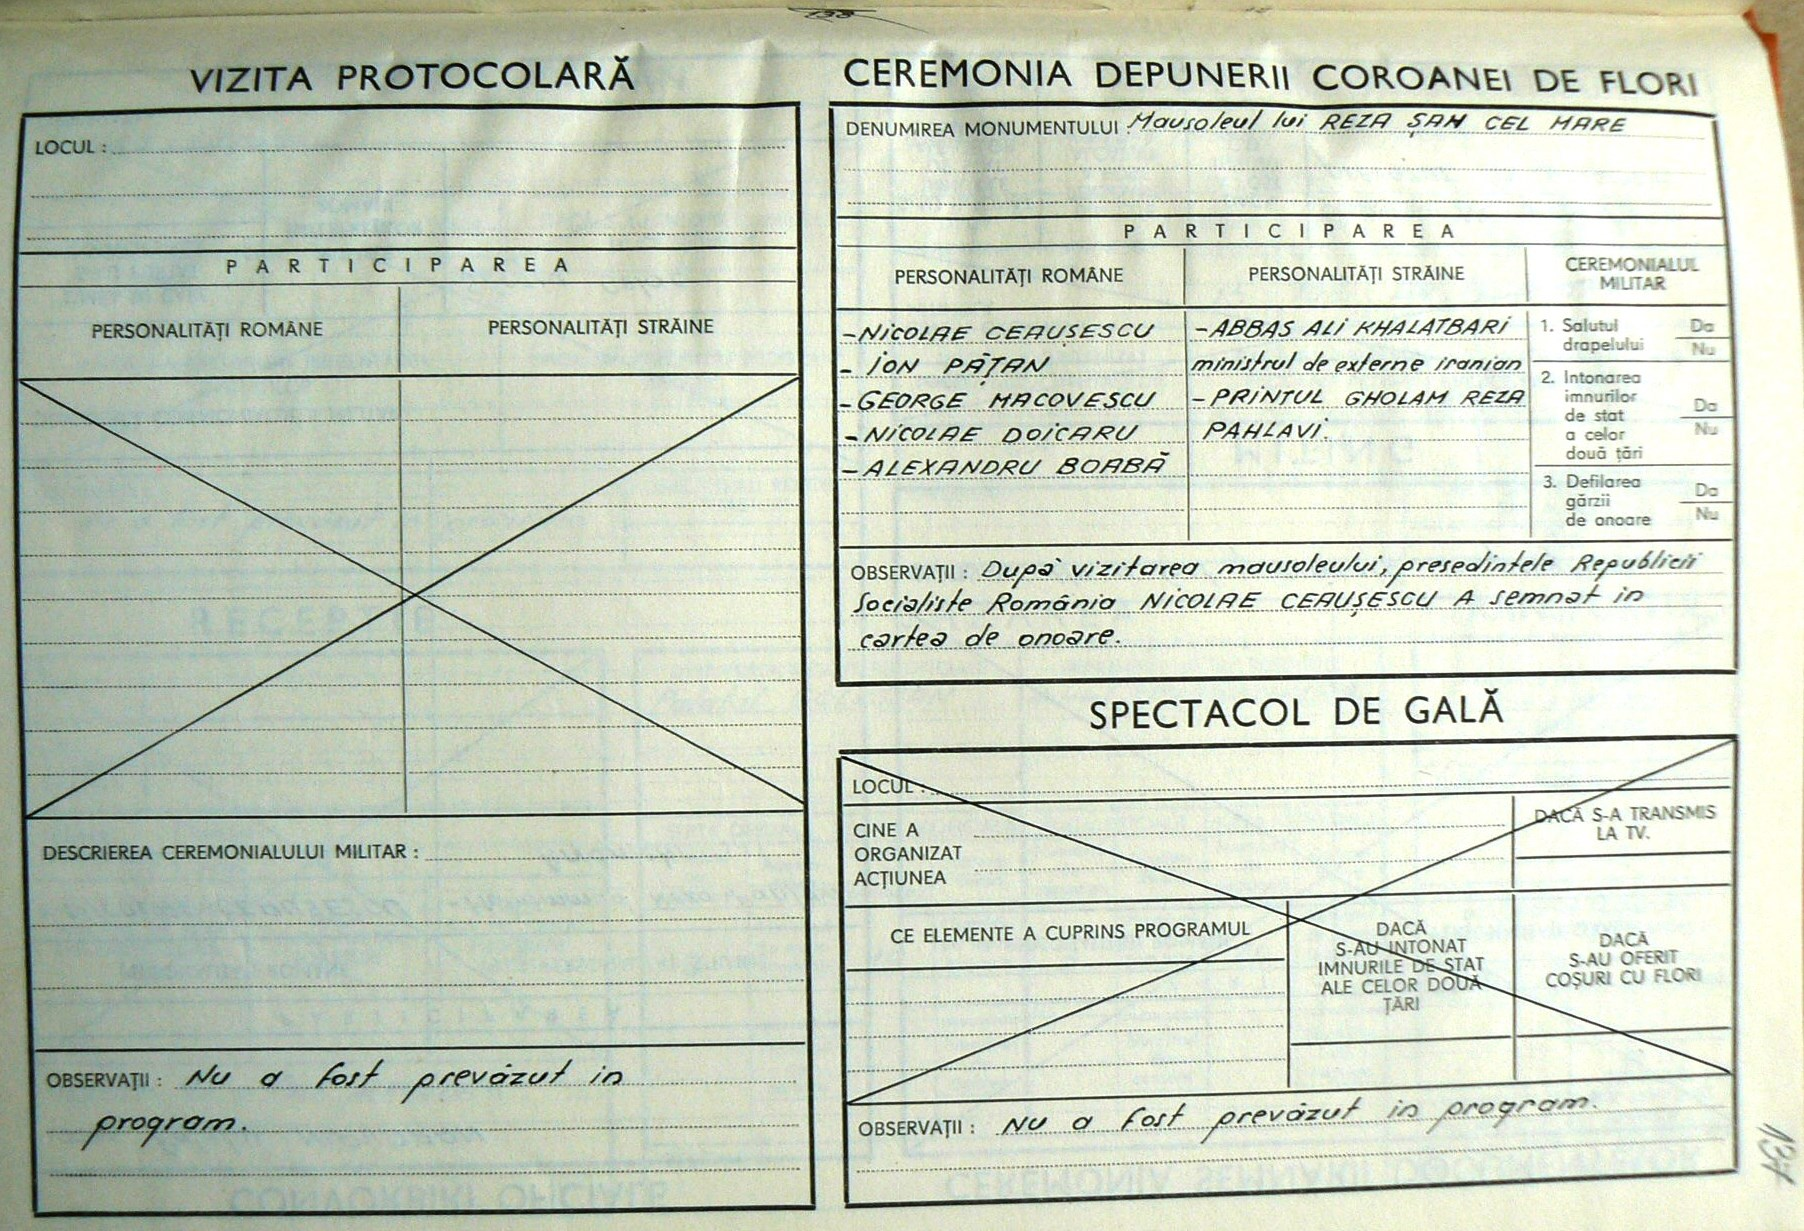 138
VIZITA PROTOCOLARĂ
LOCUL :
PARTICIPAREA
PERSONALITĂȚI ROMÂNE
PERSONALITĂȚI STRĂINE
DESCRIEREA CEREMONIALULUI MILITAR :
OBSERVAȚII : Nu a fost prevăzut in
program.
CEREMONIA DEPUNERII COROANEI DE FLORI
DENUMIREA MONUMENTULUI : Mausoleul lui REZA ȘAH CEL MARE
PARTICIPAREA
PERSONALITĂȚI ROMÂNE
PERSONALITĂȚI STRĂINE
CEREMONIALUL
MILITAR
- NICOLAE CEAUȘESCU
- ION PĂȚAN
- GEORGE MACOVESCU
- NICOLAE DOICARU
- ALEXANDRU BOABĂ
- ABBAS ALI KHALATBARI
ministrul de externe iranian
- PRINTUL GHOLAM REZA
PAHLAVI.
1. Salutul
drapelului
Da
Nu
2. Intonarea
imnurilor
de stat
a celor
două țări
Da
Nu
3. Defilarea
gărzii
de onoare
Da
Nu
OBSERVAȚII : După vizitarea mausoleului, președintele Republicii
Socialiste România NICOLAE CEAUȘESCU A semnat in
cartea de onoare.
SPECTACOL DE GALĂ
LOCUL :
CINE A
ORGANIZAT
ACȚIUNEA
DACĂ S-A TRANSMIS
LA TV.
CE ELEMENTE A CUPRINS PROGRAMUL
DACĂ
S-AU INTONAT
IMNURILE DE STAT
ALE CELOR DOUĂ
ȚĂRI
DACĂ
S-AU OFERIT
COȘURI CU FLORI
OBSERVAȚII : Nu a fost prevăzut in program.
137